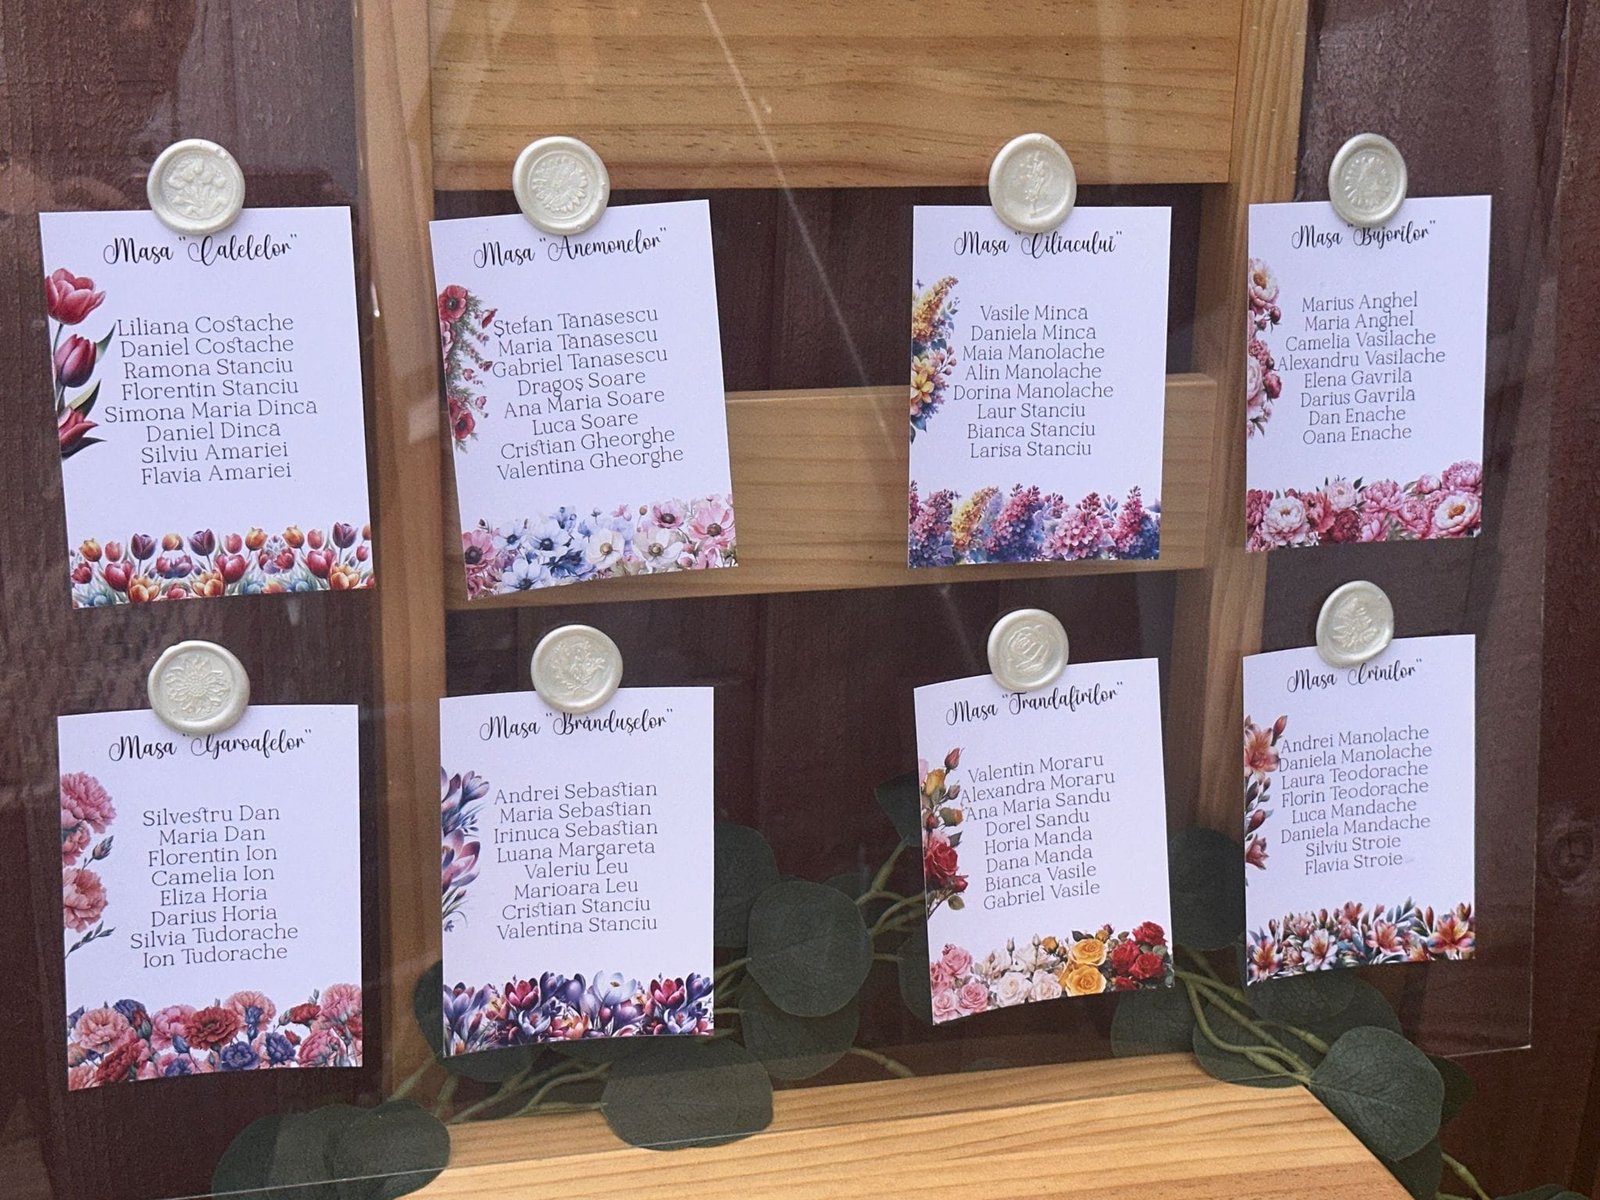 Masa "Calelelor"
Liliana Costache
Daniel Costache
Ramona Stanciu
Florentin Stanciu
Simona Maria Dincă
Daniel Dincă
Silviu Amariei
Flavia Amariei
Masa "Anemonelor"
Ștefan Tănăsescu
Maria Tănăsescu
Gabriel Tănăsescu
Dragoș Soare
Ana Maria Soare
Luca Soare
Cristian Gheorghe
Valentina Gheorghe
Masa "Liliacului"
Vasile Mincă
Daniela Mincă
Maia Manolache
Alin Manolache
Dorina Manolache
Laur Stanciu
Bianca Stanciu
Larisa Stanciu
Masa "Bujorilor"
Marius Anghel
Maria Anghel
Camelia Vasilache
Alexandru Vasilache
Elena Gavrilă
Darius Gavrilă
Dan Enache
Oana Enache
Masa "Garoafelor"
Silvestru Dan
Maria Dan
Florentin Ion
Camelia Ion
Eliza Horia
Darius Horia
Silvia Tudorache
Ion Tudorache
Masa "Brândușelor"
Andrei Sebastian
Maria Sebastian
Irinuca Sebastian
Luana Margareta
Valeriu Leu
Marioara Leu
Cristian Stanciu
Valentina Stanciu
Masa "Trandafirilor"
Valentin Moraru
Alexandra Moraru
Ana Maria Sandu
Dorel Sandu
Horia Manda
Dana Manda
Bianca Vasile
Gabriel Vasile
Masa "Crinilor"
Andrei Manolache
Daniela Manolache
Laura Teodorache
Florin Teodorache
Luca Mandache
Daniela Mandache
Silviu Stroie
Flavia Stroie